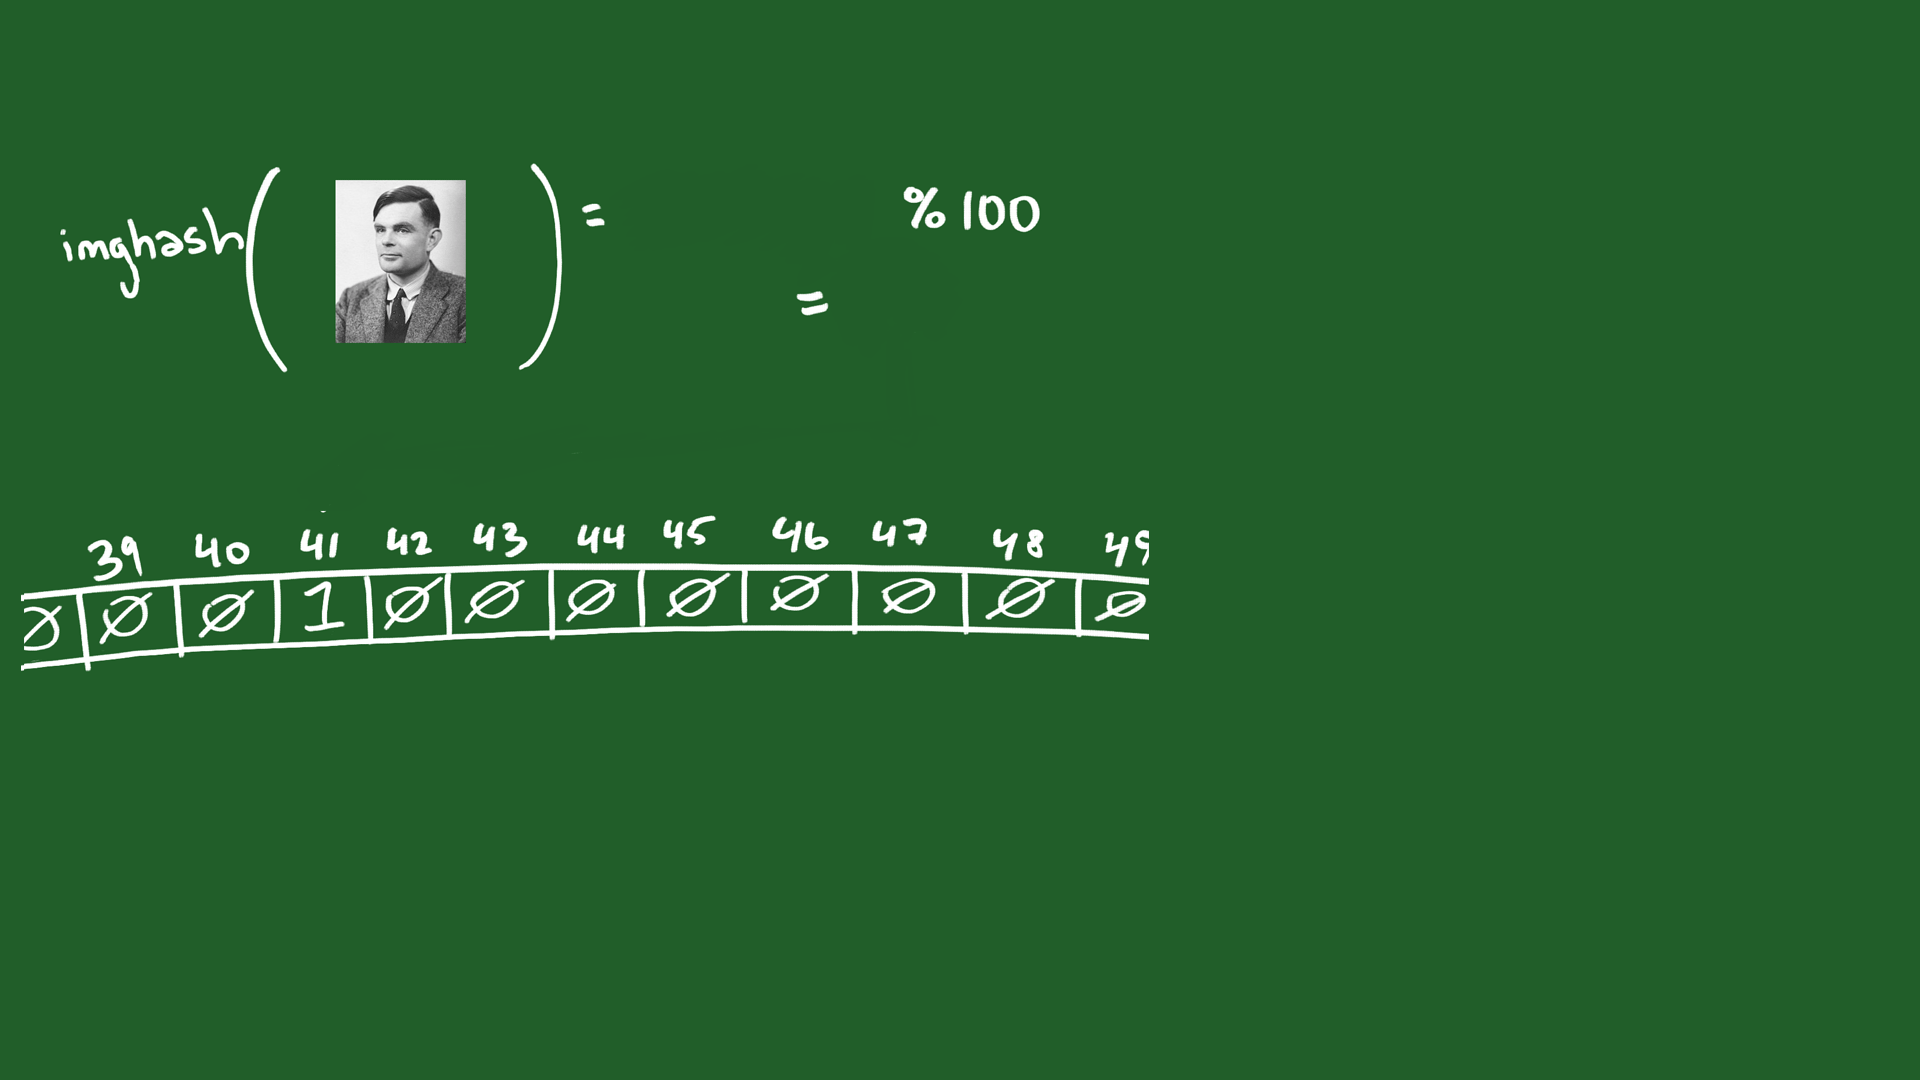 imghash( ) = % 100
=
39 40 41 42 43 44 45 46 47 48 49
Ø Ø Ø 1 Ø Ø Ø Ø Ø Ø Ø Ø